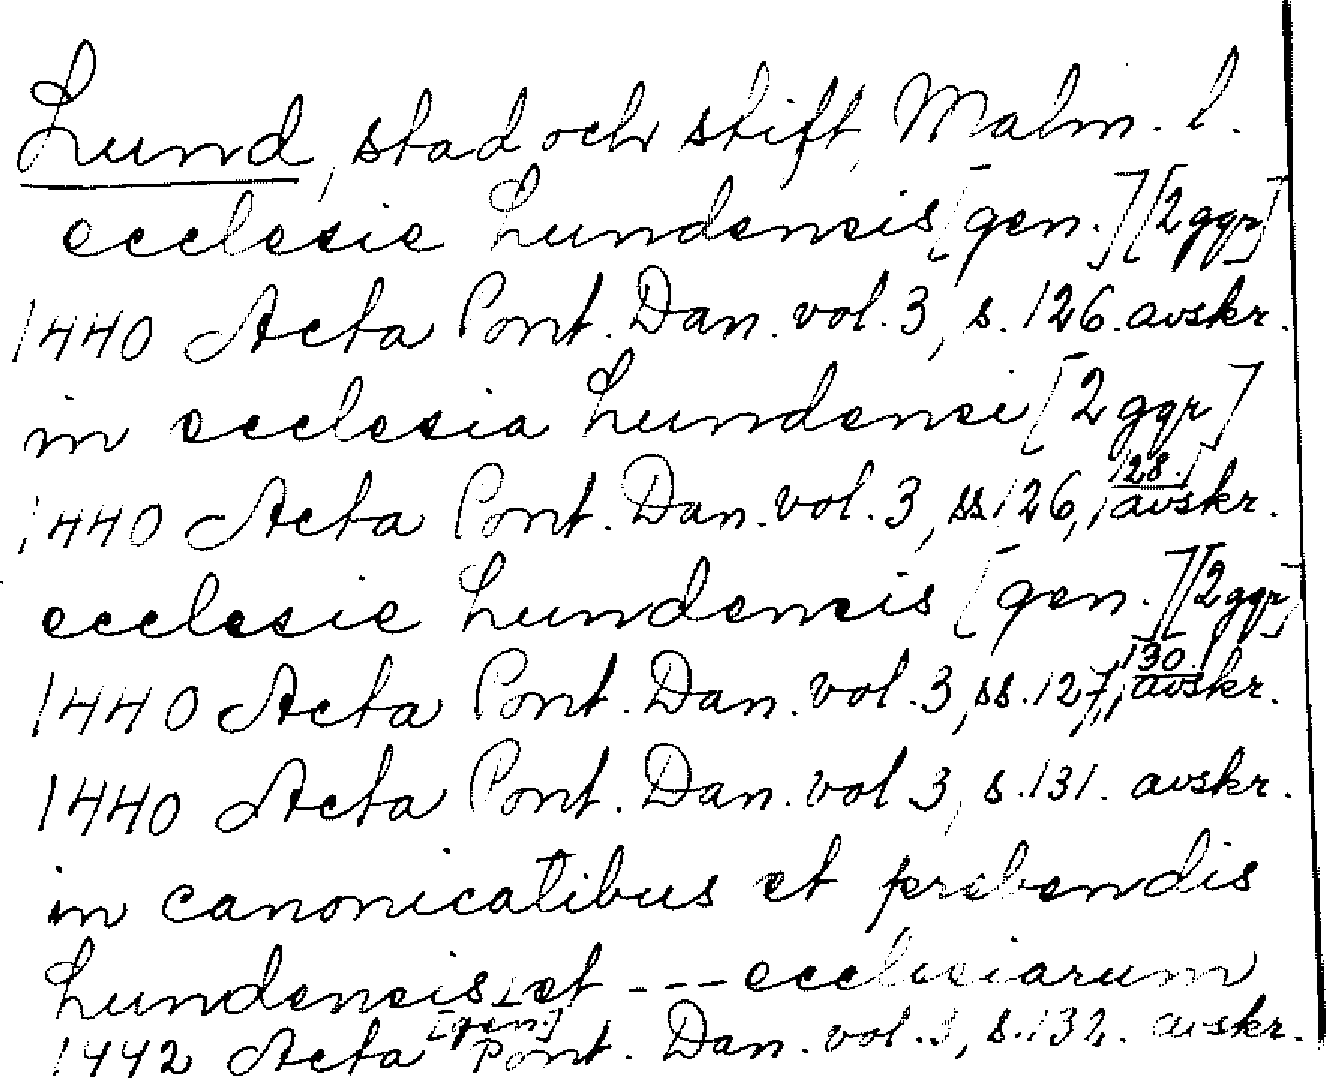 Lund, stad och stift, Malm. l.
ecclesie Lundensis [gen.] [2 ggr]
1440 Acta Pont. Dan. vol. 3, s. 126. avskr.
in ecclesia Lundensi [2 ggr]
1440 Acta Pont. Dan. vol. 3, ss. 126, 128. avskr.
ecclesie Lundensis [gen.] [2 ggr]
1440 Acta Pont. Dan. vol. 3, ss. 127, 130. avskr.
1440 Acta Pont. Dan. vol. 3, s. 131. avskr.
in canonicatibus et prebendis
Lundensis [gen.] et --- ecclesiarum
1442 Acta Pont. Dan. vol. 3, s. 132. avskr.